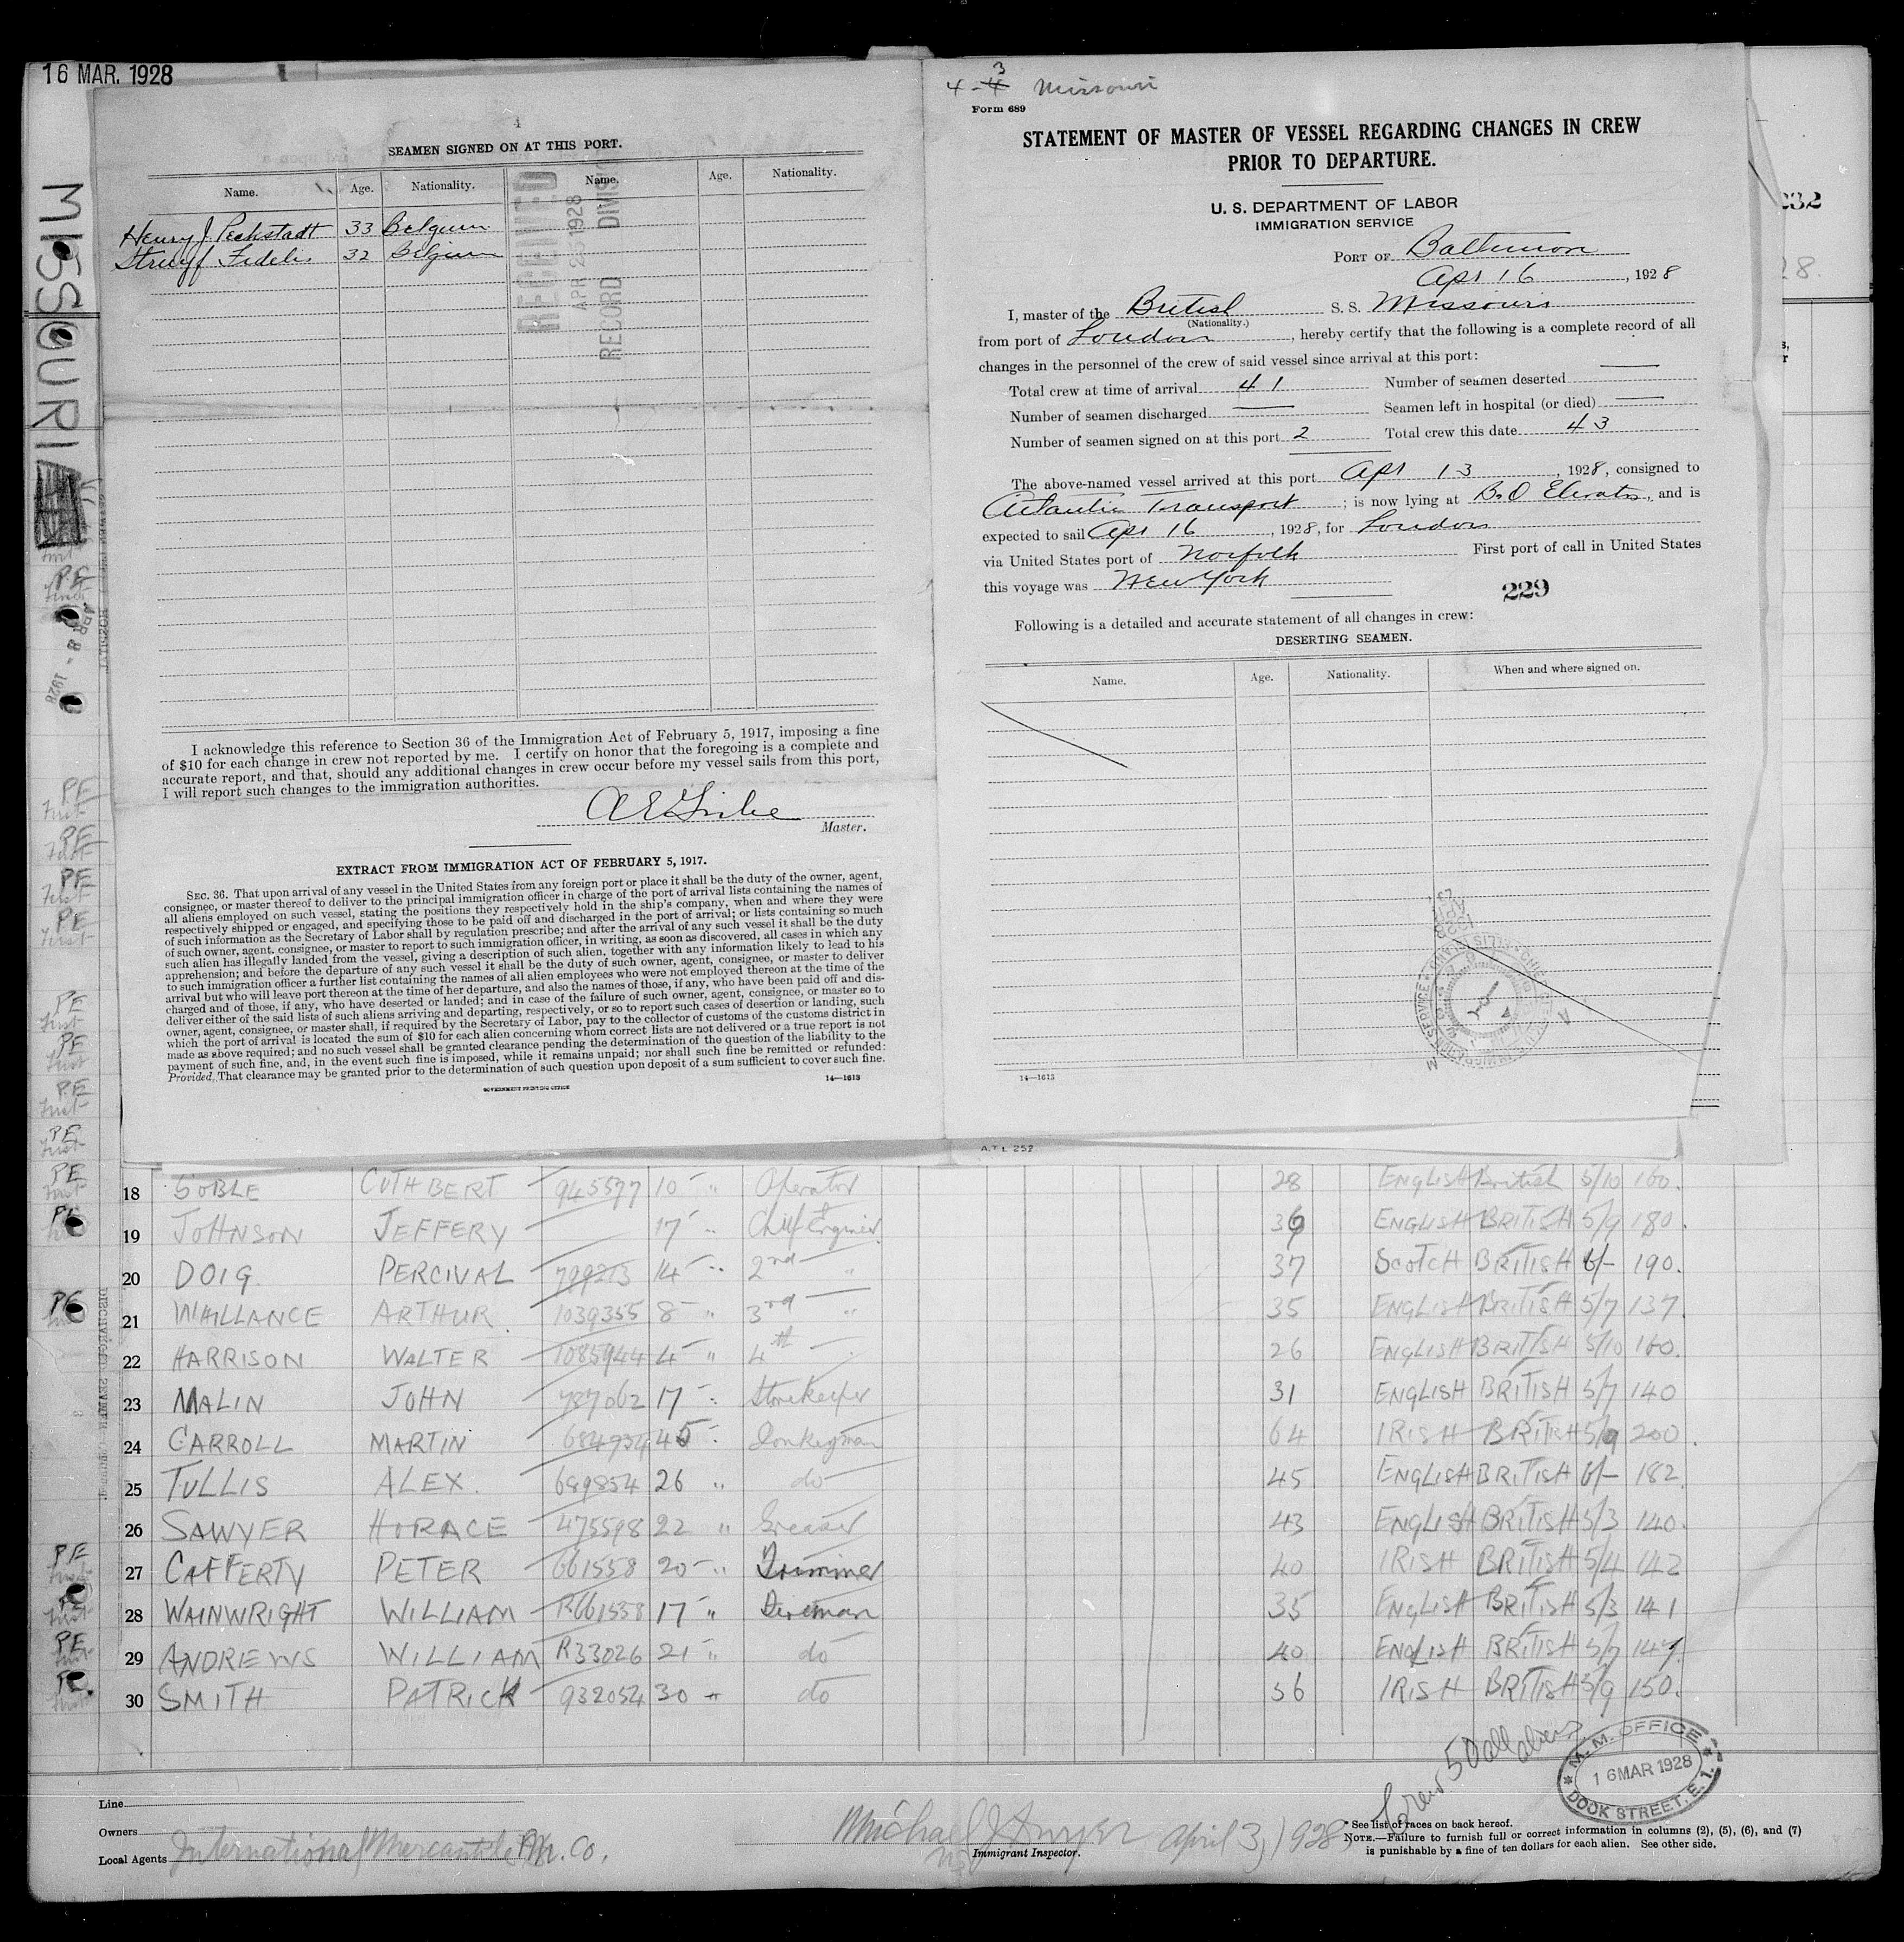 16 MAR. 1928
MISSOURI
4
SEAMEN SIGNED ON AT THIS PORT.
Name. Age. Nationality. Name. Age. Nationality.
Henry J. Peckstadt 33 Belgium
Struyf Fidelis 32 Belgium
RECEIVED
APR 1928
RECORD DIVIS
I acknowledge this reference to Section 36 of the Immigration Act of February 5, 1917, imposing a fine
of $10 for each change in crew not reported by me. I certify on honor that the foregoing is a complete and
accurate report, and that, should any additional changes in crew occur before my vessel sails from this port,
I will report such changes to the immigration authorities.
Master.
EXTRACT FROM IMMIGRATION ACT OF FEBRUARY 5, 1917.
SEC. 36. That upon arrival of any vessel in the United States from any foreign port or place it shall be the duty of the owner, agent,
consignee, or master thereof to deliver to the principal immigration officer in charge of the port of arrival lists containing the names of
all aliens employed on such vessel, stating the positions they respectively hold in the ship's company, when and where they were
respectively shipped or engaged, and specifying those to be paid off and discharged in the port of arrival; or lists containing so much
of such information as the Secretary of Labor shall by regulation prescribe; and after the arrival of any such vessel it shall be the duty
of such owner, agent, consignee, or master to report to such immigration officer, in writing, as soon as discovered, all cases in which any
such alien has illegally landed from the vessel, giving a description of such alien, together with any information likely to lead to his
apprehension; and before the departure of any such vessel it shall be the duty of such owner, agent, consignee, or master to deliver
to such immigration officer a further list containing the names of all alien employees who were not employed thereon at the time of the
arrival but who will leave port thereon at the time of her departure, and also the names of those, if any, who have been paid off and dis-
charged and of those, if any, who have deserted or landed; and in case of the failure of such owner, agent, consignee, or master so to
deliver either of the said lists of such aliens arriving and departing, respectively, or so to report such cases of desertion or landing, such
owner, agent, consignee, or master shall, if required by the Secretary of Labor, pay to the collector of customs of the customs district in
which the port of arrival is located the sum of $10 for each alien concerning whom correct lists are not delivered or a true report is not
made as above required; and no such vessel shall be granted clearance pending the determination of the question of the liability to the
payment of such fine, and, in the event such fine is imposed, while it remains unpaid; nor shall such fine be remitted or refunded:
Provided, That clearance may be granted prior to the determination of such question upon deposit of a sum sufficient to cover such fine.
GOVERNMENT PRINTING OFFICE 14—1613
4-3 Missouri
Form 689
STATEMENT OF MASTER OF VESSEL REGARDING CHANGES IN CREW
PRIOR TO DEPARTURE.
U. S. DEPARTMENT OF LABOR
IMMIGRATION SERVICE
PORT OF Baltimore
Apr 16, 1928
I, master of the British S. S. Missouri
(Nationality.)
from port of London, hereby certify that the following is a complete record of all
changes in the personnel of the crew of said vessel since arrival at this port:
Total crew at time of arrival 41 Number of seamen deserted —
Number of seamen discharged — Seamen left in hospital (or died) —
Number of seamen signed on at this port 2 Total crew this date 43
The above-named vessel arrived at this port Apr 13, 1928, consigned to
Atlantic Transport; is now lying at B.O Elevator, and is
expected to sail Apr 16, 1928, for London
via United States port of Norfolk First port of call in United States
this voyage was New York
229
Following is a detailed and accurate statement of all changes in crew:
DESERTING SEAMEN.
Name. Age. Nationality. When and where signed on.
14—1613
232
28.
A.T.L 252
18 GOBLE CUTHBERT 945577 10 " Operator 28 ENGLISH British 5/10 160.
19 JOHNSON JEFFERY 17 " Chief Engineer 39 ENGLISH BRITISH 5/9 180.
20 DOIG. PERCIVAL 799213 14 " 2nd " 37 SCOTCH BRITISH 6/- 190.
21 WHILLANCE ARTHUR. 1039355 8 " 3rd " 35 ENGLISH BRITISH 5/7 137.
22 HARRISON WALTER 1085944 4 " 4th 26 ENGLISH BRITISH 5/10 160.
23 MALIN JOHN 787062 17 " Storekeeper 31 ENGLISH BRITISH 5/7 140
24 CARROLL MARTIN 684934 45 " Donkeyman 64 IRISH BRITISH 5/9 200.
25 TULLIS ALEX. 689854 26 " do 45 ENGLISH BRITISH 6/- 182
26 SAWYER HORACE 475598 22 " Greaser 43 ENGLISH BRITISH 5/3 140.
27 CAFFERTY PETER 661558 20 " Trimmer 40 IRISH BRITISH 5/4 142
28 WAINWRIGHT WILLIAM R661538 17 " Fireman 35 ENGLISH BRITISH 5/3 141
29 ANDREWS WILLIAM R33026 21 " do 40 ENGLISH BRITISH 5/7 147.
30 SMITH PATRICK 932054 30 " do 56 IRISH BRITISH 5/9 150.
Crew 50 all aliens
M. M. OFFICE
16 MAR 1928
DOCK STREET, E. 1.
Line
Owners
Local Agents International Mercantile M. Co.
Michael J Dwyer April 3, 1928
Immigrant Inspector.
* See list of races on back hereof.
NOTE.—Failure to furnish full or correct information in columns (2), (5), (6), and (7)
is punishable by a fine of ten dollars for each alien. See other side.